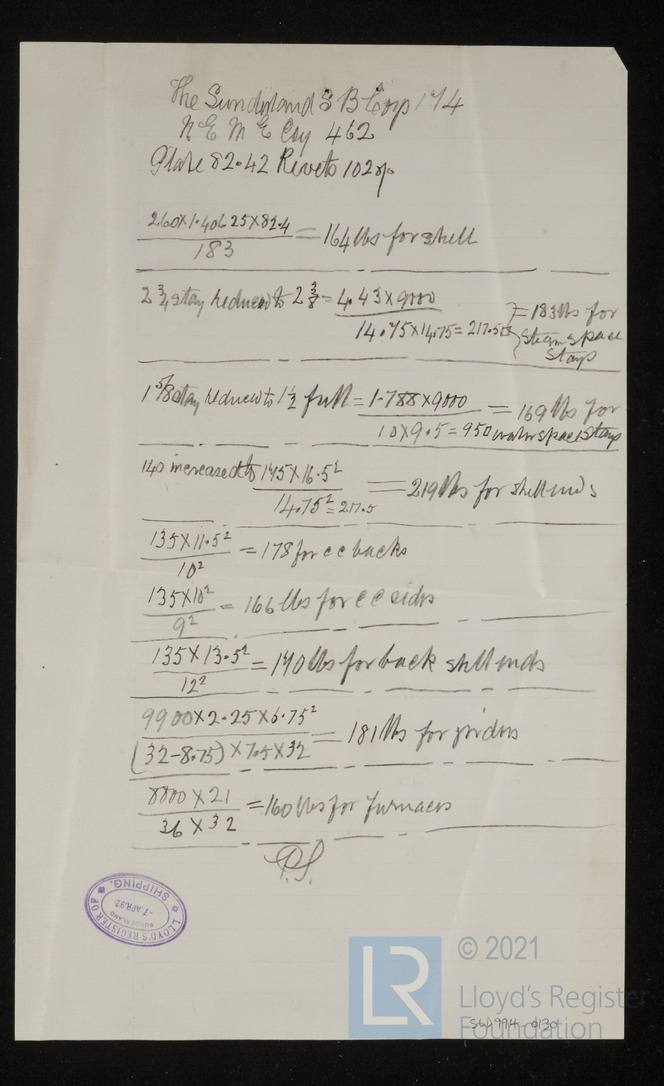 The Sunderland S B Coy 174
N E M E Coy 462
Plate 82.42 Rivets 102%
260x1.40625x82.4
183
= 164 lbs for shell
2 3/4 stay reduced to 2 3/8 = 4.43 x 9000
14.75x14.75 = 217.5
= 183 lbs for
steam space
stays
1 5/8 stay reduced to 1 1/2 full = 1.788 x 9000
10x9.5 = 950
= 169 lbs for
water space stays
140 increased to 175 x 16.5²
14.75² = 217.5
= 219 lbs for shell ends
135 x 11.5²
10²
= 178 for c c backs
135 x 10²
9²
= 166 lbs for c c sides
135 x 13.5²
12²
= 170 lbs for back shell ends
9900 x 2.25 x 6.75²
(32-8.75) x 7.5 x 32
= 181 lbs for girders
8800 x 21
36 x 32
= 160 lbs for furnaces
P.S.
LLOYD'S REGISTER OF
SHIPPING.
SUNDERLAND
-7 APR.92
LR
© 2021
Lloyd's Register
Foundation